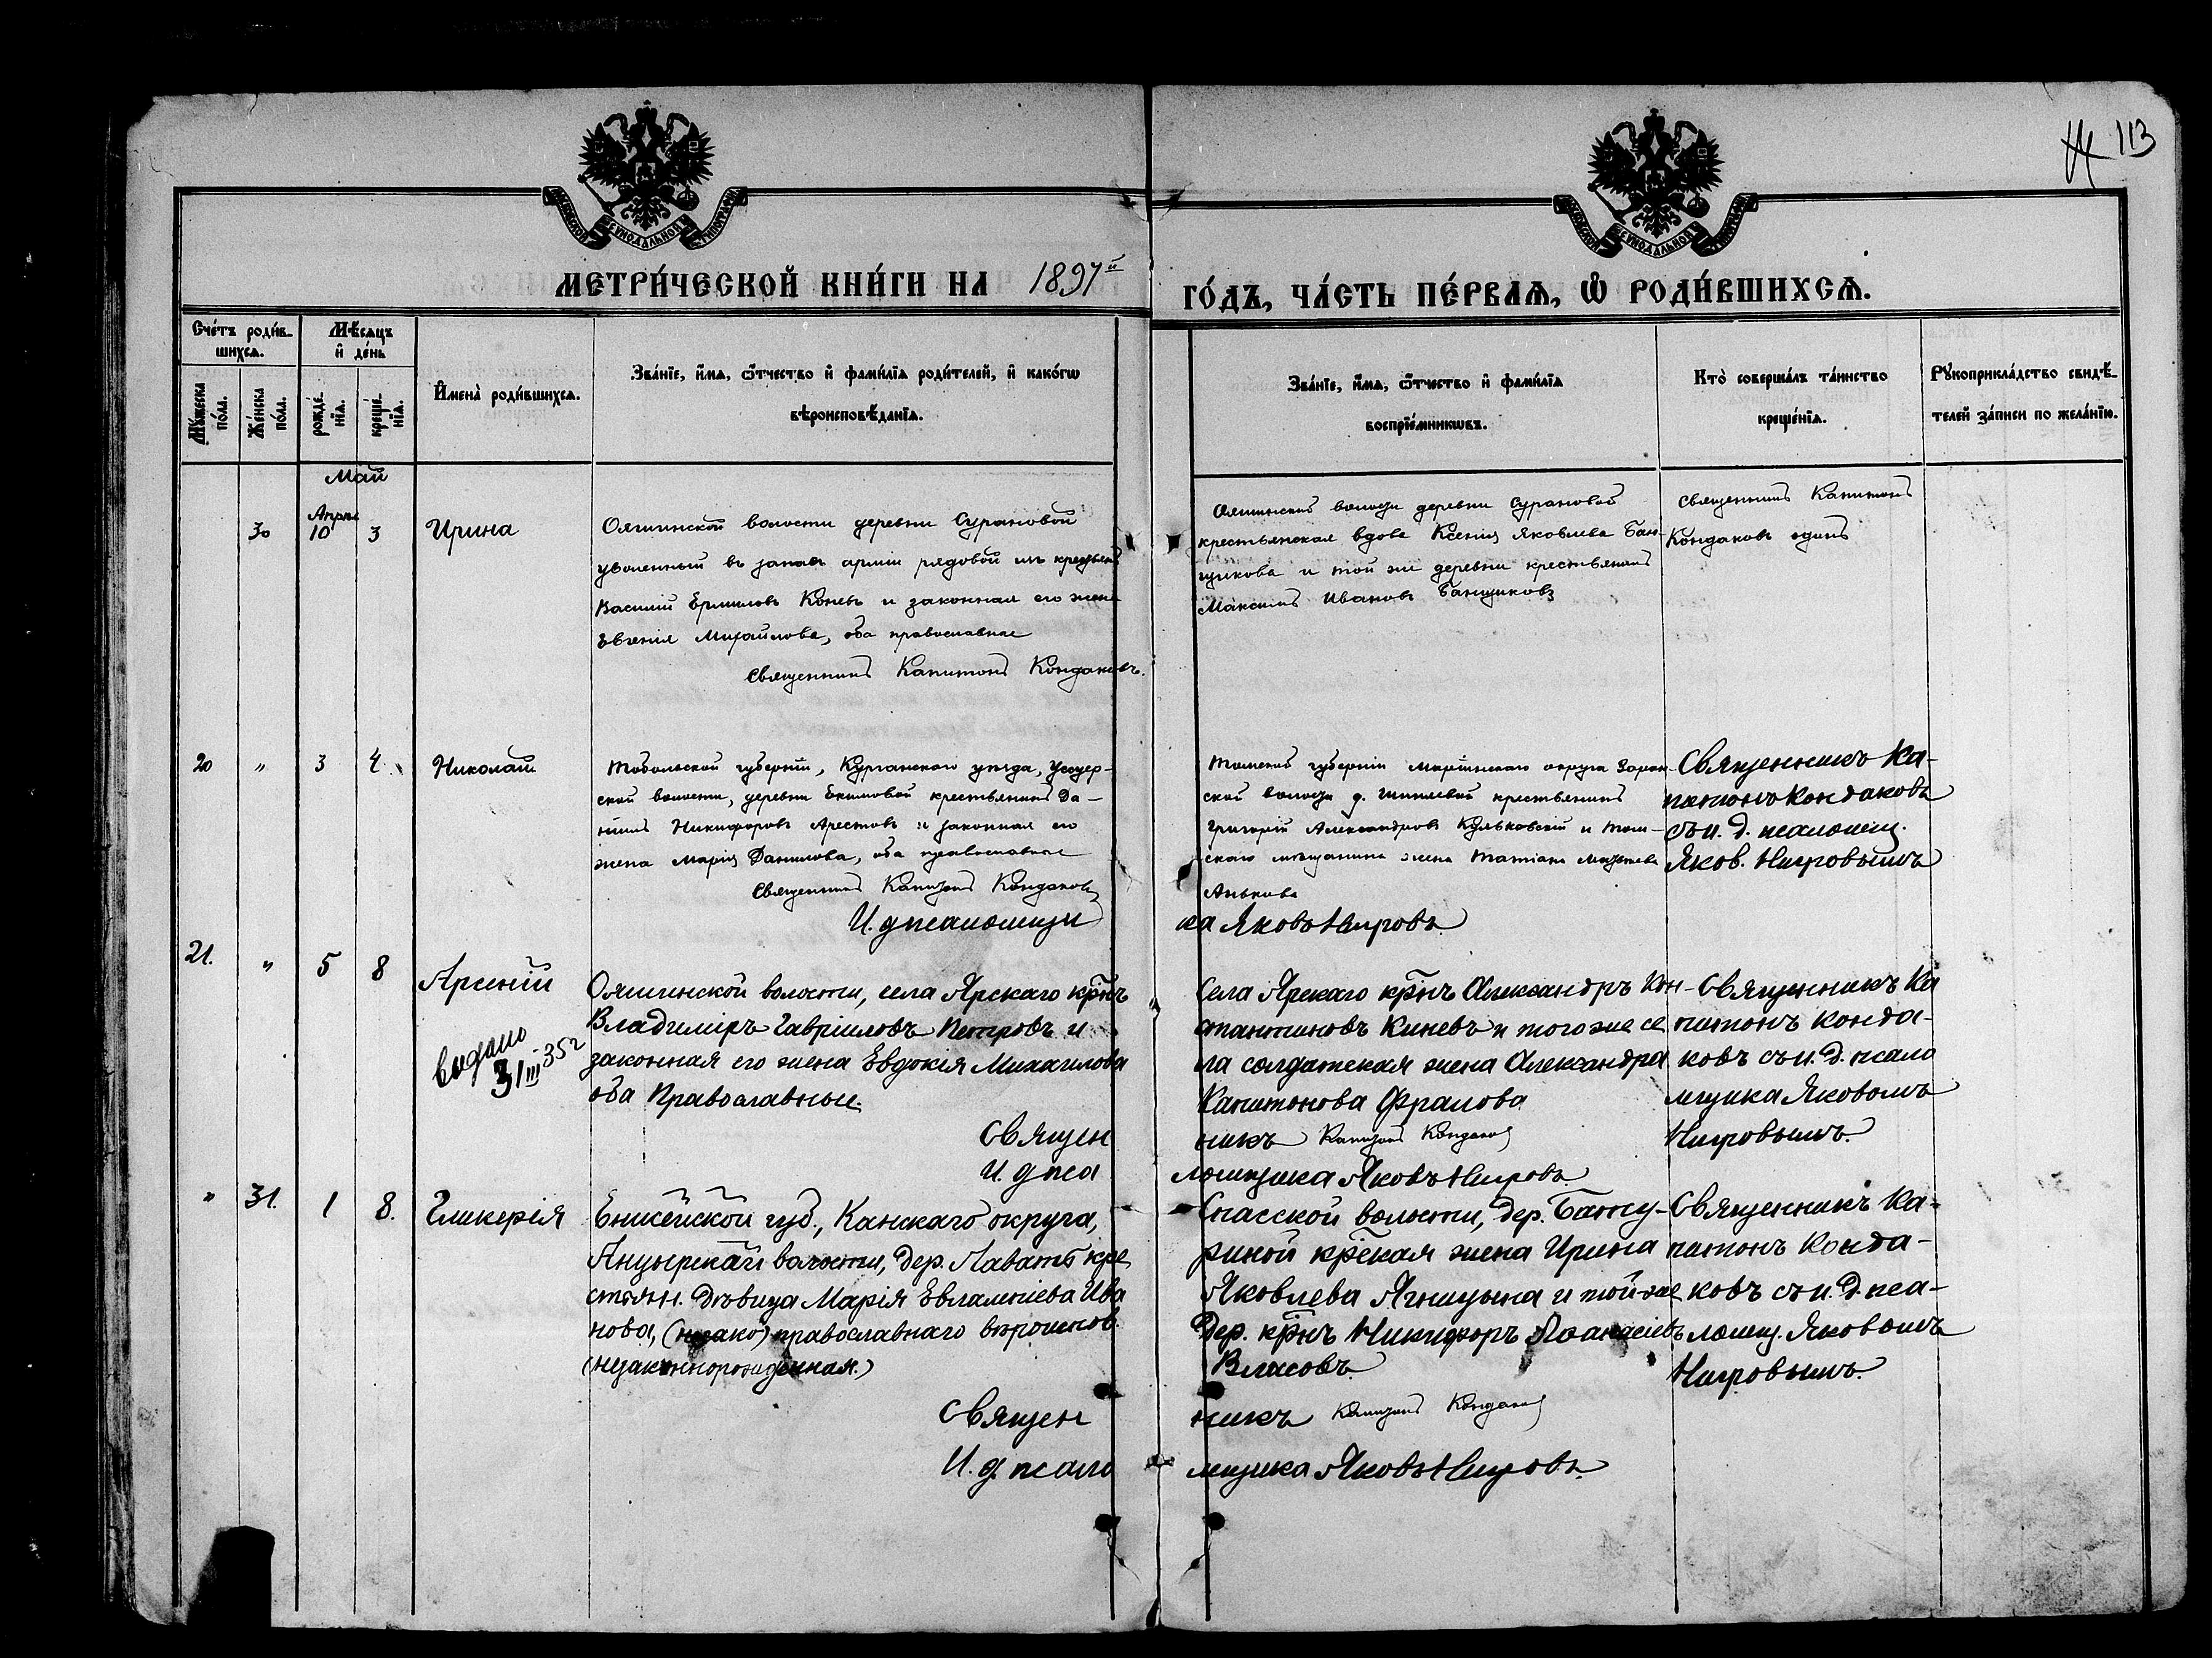 113
МОСКОВСКОЙ СѴНОДАЛЬНОЙ ТИПОГРАФІИ
МЕТРИ́ЧЕСКОЙ КНИ́ГИ НА 1897й ГО́ДЪ, ЧА́СТЬ ПЕ́РВАѦ, Ѡ҆ РОДИ́ВШИХСѦ.
Сче́тъ роди́в-
шихсѧ.
Мѣ́сѧцъ
и҆ де́нь
Мꙋ́жеска по́ла.
Же́нска по́ла.
рожде́-нїѧ.
креще́-нїѧ.
И҆мена̀ роди́вшихсѧ.
Зва́нїе, и҆́мѧ, ѻ҆́тчество и҆ фами́лїѧ роди́телей, и҆ како́гѡ
вѣроисповѣ́данїѧ.
Зва́нїе, и҆́мѧ, ѻ҆́тчество и҆ фами́лїѧ
воспрїе́мникѡвъ.
Кто̀ соверша́лъ та́инство
креще́нїѧ.
Рꙋкоприкла́дство свидѣ́-
телей за́писи по жела́нїю.
Май
Апрѣл
30 10 3 Ирина
Ояшинской волости деревни Сурановой
уволенный въ запасъ арміи рядовой изъ крестьянъ
Василій Ермиловъ Коневъ и законная его жена
Евгенія Михайлова, оба православные
Священникъ Капитонъ Кондаковъ.
Ояшинской волости деревни Сурановой
крестьянская вдова Ксенія Яковлева Бан-
щикова и той же деревни крестьянинъ
Максимъ Ивановъ Банщиковъ
Священникъ Капитонъ
Кондаковъ одинъ
20 " 3 4 Николай
Тобольской губерніи, Курганскаго уѣзда,
ской волости, деревни Екимовой крестьянинъ Да-
нилъ Никифоровъ Арестовъ и законная его
жена Марія Данилова, оба православные
Священникъ Капитонъ Кондаковъ
И. д псаломщи
Томской губерніи Маріинскаго округа
ской волости д. крестьянинъ
Григорій Александровъ Кульковскій и Том-
скаго мѣщанина жена Татіана
Анькова
ка Яковъ Нигровъ
Священникъ Ка-
питонъ Кондаковъ
съ и. д. псаломщ.
Яков. Нигровымъ
21. " 5 8 Арсеній
выдано
31 III 35 г
Ояшинской волости, села Ярскаго кр̃нъ
Владиміръ Гавріиловъ Петровъ и
законная его жена Евдокія Михаилова
оба Православные.
Священ
И. д пса
Села Ярскаго кр̃нъ Александръ Кон-
стантиновъ Киневъ и того же се
ла солдатская жена Александра
Капитонова Фралова
никъ Капитонъ Кондаковъ
ломщика Яковъ Нигровъ
Священникъ Ка
питонъ Конда-
ковъ съ и. д. псало
мщика Яковомъ
Нигровымъ.
" 31. 1 8. Гликерія
Енисейской губ., Канскаго округа,
Анцырской волости, дер. Лаватъ кре
стьян. дѣвица Марія Евлампіева Ива
нова, (незако) православнаго вѣроиспов.
(незаконнорожденная.)
Священ
И. д псало
Спасской волости, дер. Бату-
риной кр̃ская жена Ирина
Яковлева Ягницына и той же
дер. кр̃нъ Никифоръ Аѳанасіевъ
Власовъ
никъ Капитонъ Кондаковъ
мщика Яковъ Нигровъ.
Священникъ Ка-
питонъ Конда-
ковъ съ и. д. пса-
ломщ. Яковомъ
Нигровымъ.